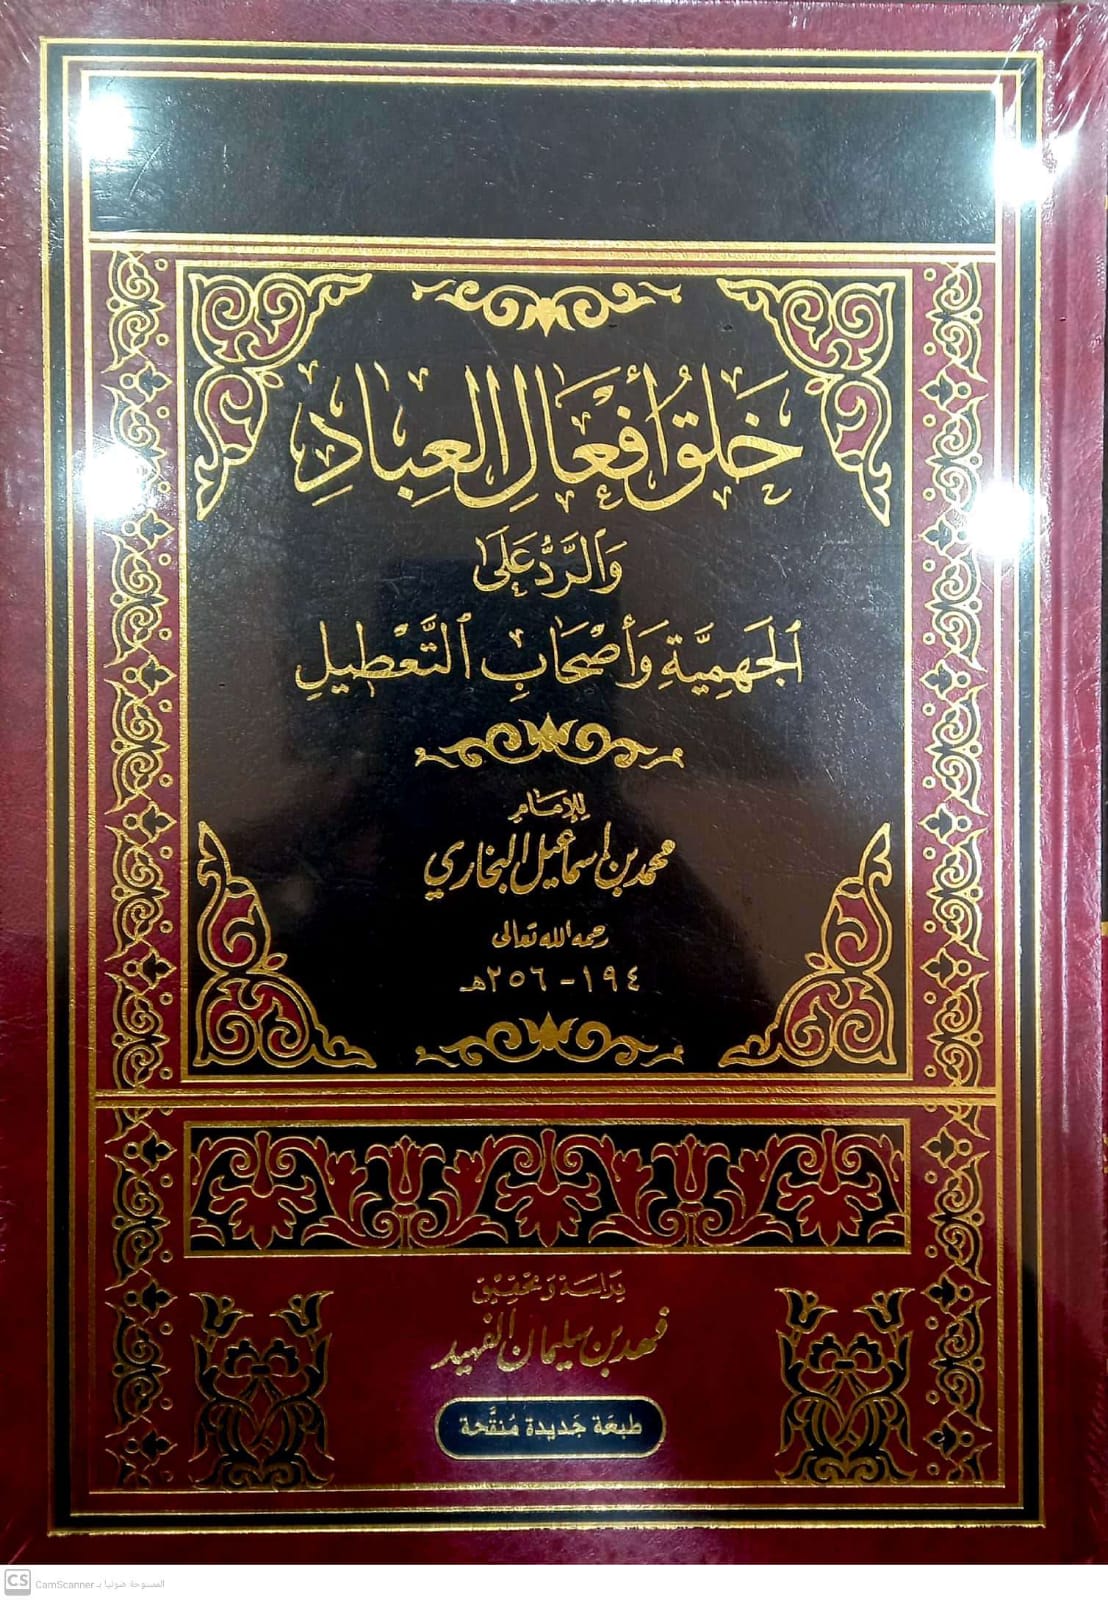 خَلقُ أفْعَالِ العِبادِ
وَٱلرَّدُّ عَلَىٰ
ٱلجَهمِيَّةِ وَأصْحَابِ ٱلتَّعْطِيلِ
لِلإمَام
محمد بن إسماعيل البخاري
رحمه الله تعالى
١٩٤ - ٢٥٦هـ
دِرَاسَة وَتحقِيْق
فهد بن سليمان الفهيد
طبعَة جَديدة مُنقَّحة
CS CamScanner الممسوحة ضوئيا بـ